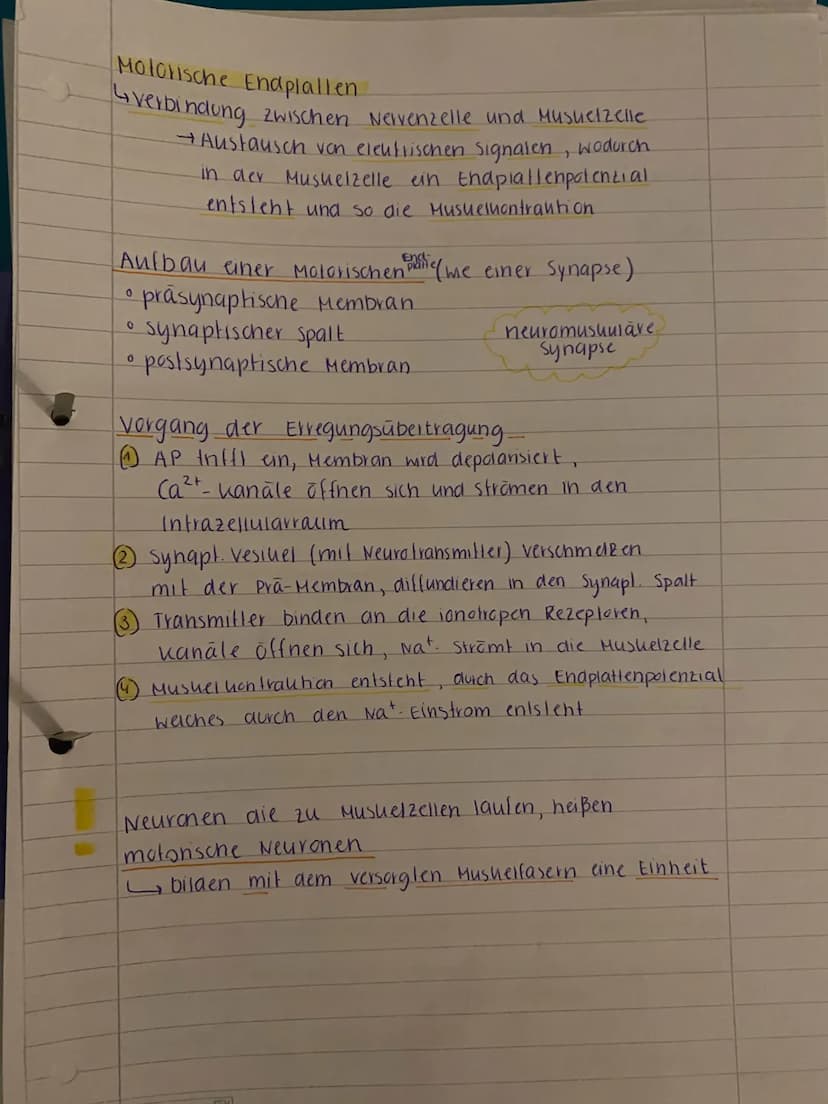 Motorische Endplatten
↳ Verbindung zwischen Nervenzelle und Muskelzelle
→ Austausch von elektrischen Signalen, wodurch
in der Muskelzelle ein Endplattenpotenzial
entsteht und so die Muskelkontraktion
Aufbau einer Motorischen Endplatte (wie einer Synapse)
° präsynaptische Membran
° synaptischer Spalt
° postsynaptische Membran
neuromuskuläre
Synapse
Vorgang der Erregungsübertragung
① AP trifft ein, Membran wird depolarisiert,
Ca²⁺-Kanäle öffnen sich und strömen in den
Intrazellularraum
② Synapt. Vesikel (mit Neurotransmitter) verschmelzen
mit der Prä-Membran, diffundieren in den Synapt. Spalt
③ Transmitter binden an die ionotropen Rezeptoren,
Kanäle öffnen sich, Na⁺- strömt in die Muskelzelle
④ Muskelkontraktion entsteht, durch das Endplattenpotenzial
welches durch den Na⁺-Einstrom entsteht
! Neuronen die zu Muskelzellen laufen, heißen
motorische Neuronen
↳ bilden mit dem versorgten Muskelfasern eine Einheit